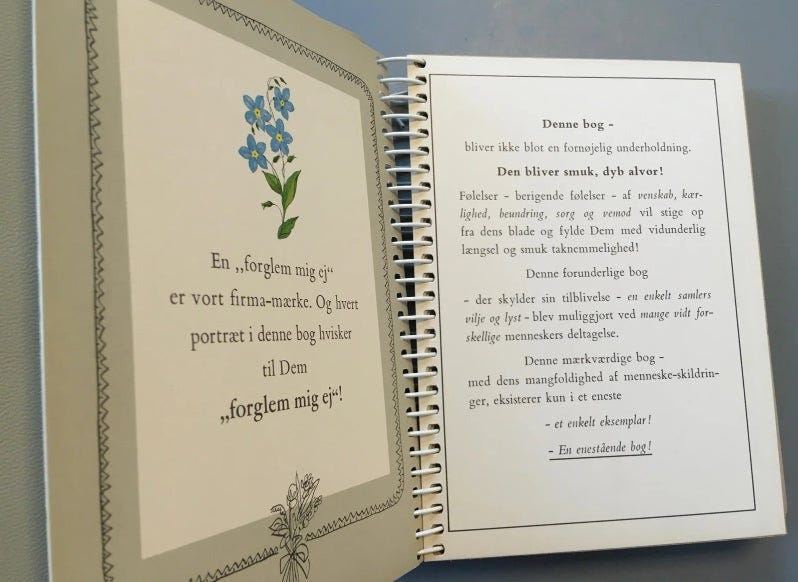 En „forglem mig ej“
er vort firma-mærke. Og hvert
portræt i denne bog hvisker
til Dem
„forglem mig ej“!
Denne bog –
bliver ikke blot en fornøjelig underholdning.
Den bliver smuk, dyb alvor!
Følelser – berigende følelser – af venskab, kær-
lighed, beundring, sorg og vemod vil stige op
fra dens blade og fylde Dem med vidunderlig
længsel og smuk taknemmelighed!
Denne forunderlige bog
– der skylder sin tilblivelse – en enkelt samlers
vilje og lyst – blev muliggjort ved mange vidt for-
skellige menneskers deltagelse.
Denne mærkværdige bog –
med dens mangfoldighed af menneske-skildrin-
ger, eksisterer kun i et eneste
– et enkelt eksemplar!
– En enestående bog!